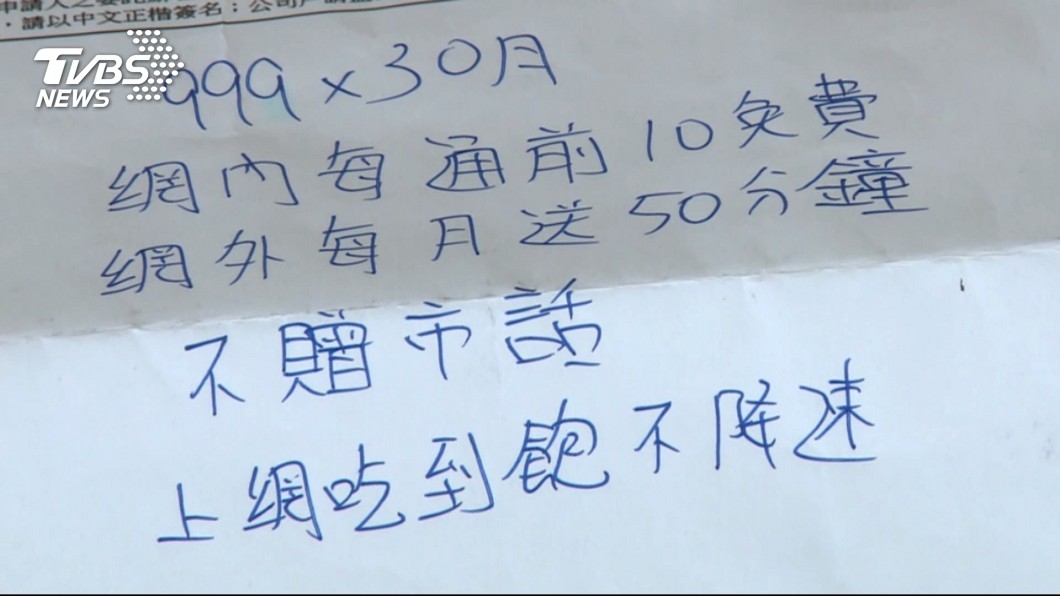 申請人之委託
，請以中文正楷簽名；公司戶請蓋
TVBS
NEWS
999 x 30月
網內每通前10免費
網外每月送50分鐘
不贈市話
上網吃到飽不降速